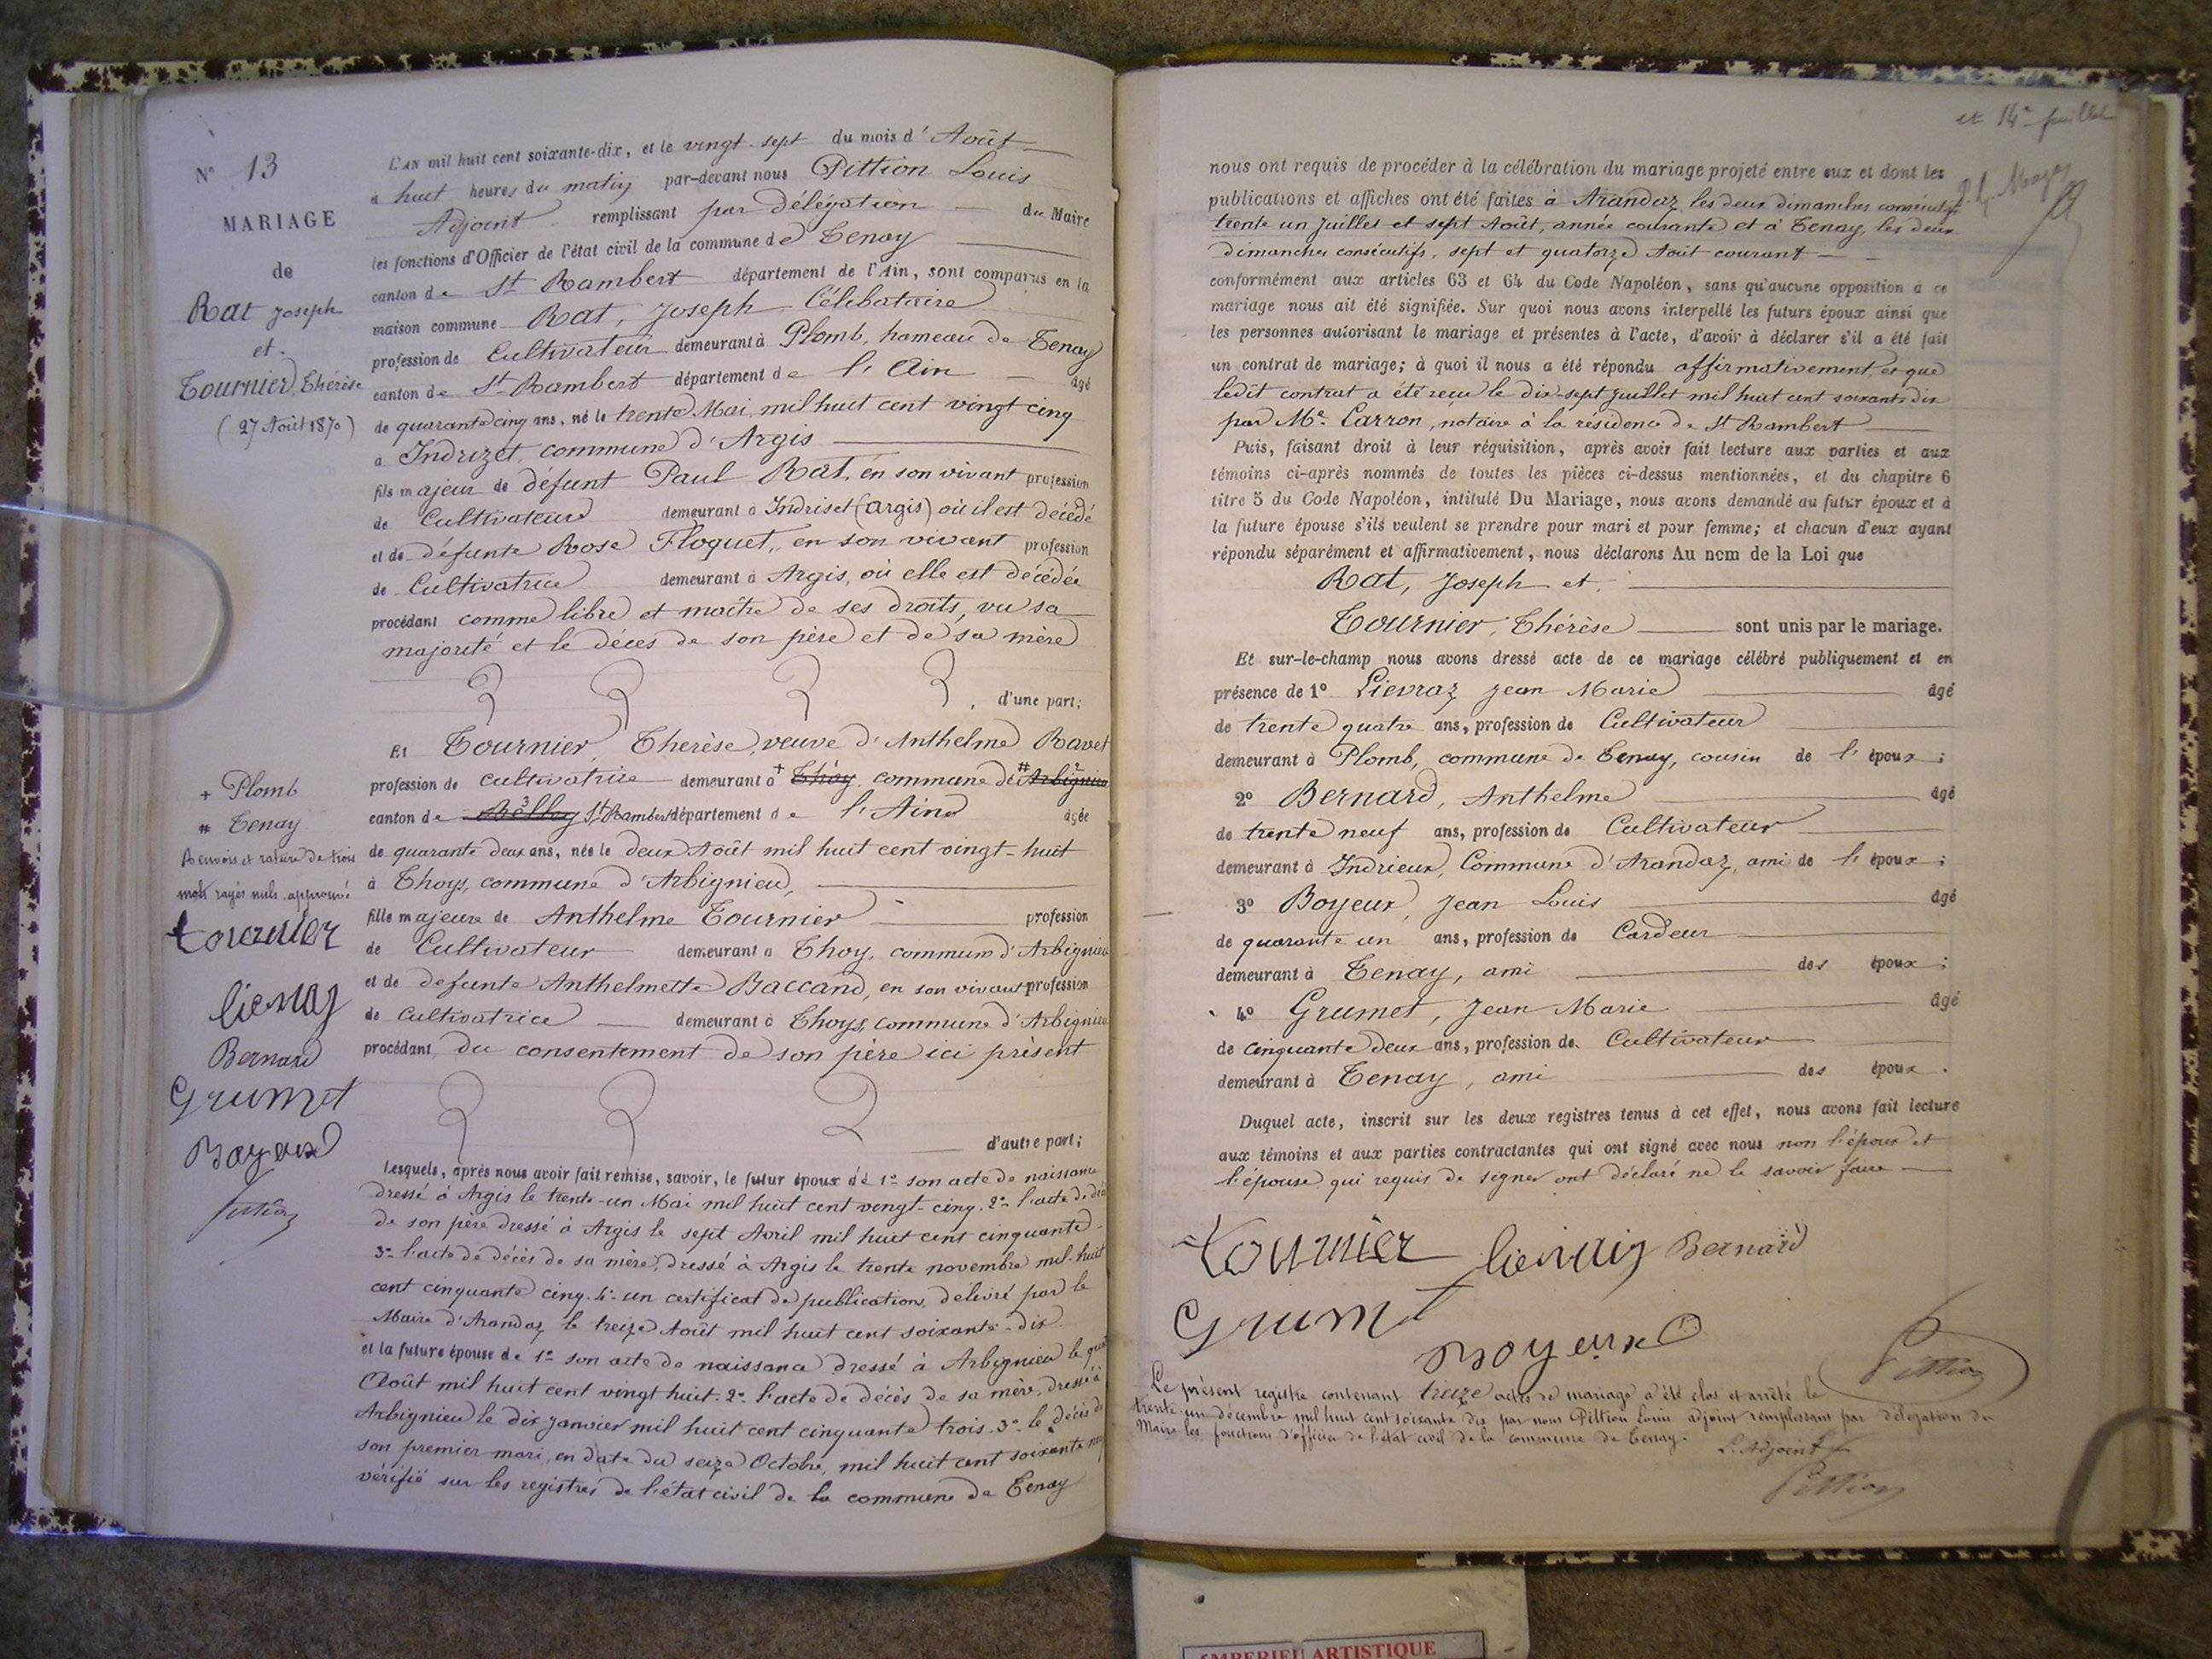 N° 13
MARIAGE
de
Rat Joseph
et
Tournier, Thérèse
(27 Août 1870)
L'AN mil huit cent soixante-dix, et le vingt-sept du mois d'Août
à huit heures du matin par-devant nous Pittion Louis
Adjoint remplissant par Délégation du Maire
les fonctions d'Officier de l'état civil de la commune de Tenay
canton de St Rambert département de l'Ain, sont comparus en la
maison commune Rat, Joseph Célibataire
profession de Cultivateur demeurant à Plomb, hameau de Tenay
canton de St Rambert département de l'Ain âgé
de quarante cinq ans, né le trente Mai, mil huit cent vingt cinq
à Indrizet, commune d'Argis
fils majeur de défunt Paul Rat, en son vivant profession
de Cultivateur demeurant à Indriset (Argis) où il est décédé
et de défunte Rose Floquet, en son vivant profession
de Cultivatrice demeurant à Argis, où elle est décédée
procédant comme libre et maître de ses droits, vu sa
majorité et le décès de son père et de sa mère
d'une part;
Et Tournier, Thérèse, veuve d'Anthelme Ravet
profession de cultivatrice demeurant à + Thoy, commune de # Arbignieu
canton de Belley St Rambert département de l'Ain âgée
de quarante deux ans, née le deux Août mil huit cent vingt-huit
à Thoys, commune d'Arbignieu,
fille majeure de Anthelme Tournier profession
de Cultivateur demeurant à Thoy, commune d'Arbignieu
et de défunte Anthelmette Baccand, en son vivant profession
de Cultivatrice demeurant à Thoys, commune d'Arbignieu
procédant du consentement de son père ici présent
d'autre part;
+ Plomb
# Tenay
Renvois et rature de trois
mots rayés nuls approuvé
tournier
lievraz
Bernard
Grumet
Boyeux
Pittion
Lesquels, après nous avoir fait remise, savoir, le futur époux de 1° son acte de naissance
dressé à Argis le trente-un Mai mil huit cent vingt-cinq. 2° l'acte de décès
de son père dressé à Argis le sept Avril mil huit cent cinquante
3° l'acte de décès de sa mère, dressé à Argis le trente novembre mil-huit
cent cinquante cinq. 4° un certificat de publications délivré par le
Maire d'Arandaz le treize Août mil huit cent soixante-dix
et la future épouse de 1° son acte de naissance dressé à Arbignieu le
Août mil huit cent vingt huit. 2° l'acte de décès de sa mère, dressé à
Arbignieu le dix janvier mil huit cent cinquante trois. 3° le décès de
son premier mari, en date du seize Octobre, mil huit cent soixante
vérifié sur les registres de l'état civil de la commune de Tenay
et 14e feuillet
nous ont requis de procéder à la célébration du mariage projeté entre eux et dont les
publications et affiches ont été faites à Arandaz les deux dimanches consécutifs
trente un Juillet et sept Août, année courante et à Tenay, les deux
dimanches consécutifs, sept et quatorze Août courant
conformément aux articles 63 et 64 du Code Napoléon, sans qu'aucune opposition à ce
mariage nous ait été signifiée. Sur quoi nous avons interpellé les futurs époux ainsi que
les personnes autorisant le mariage et présentes à l'acte, d'avoir à déclarer s'il a été fait
un contrat de mariage; à quoi il nous a été répondu affirmativement et que
ledit contrat a été reçu le dix-sept juillet mil huit cent soixante dix
par Me Carron, notaire à la résidence de St Rambert
Puis, faisant droit à leur réquisition, après avoir fait lecture aux parties et aux
témoins ci-après nommés de toutes les pièces ci-dessus mentionnées, et du chapitre 6
titre 5 du Code Napoléon, intitulé Du Mariage, nous avons demandé au futur époux et à
la future épouse s'ils veulent se prendre pour mari et pour femme; et chacun d'eux ayant
répondu séparément et affirmativement, nous déclarons Au nom de la Loi que
Rat, Joseph et
Tournier, Thérèse sont unis par le mariage.
Et sur-le-champ nous avons dressé acte de ce mariage célébré publiquement et en
présence de 1° Lievraz Jean Marie âgé
de trente quatre ans, profession de Cultivateur
demeurant à Plomb, commune de Tenay, cousin de l'époux;
2° Bernard, Anthelme âgé
de trente neuf ans, profession de Cultivateur
demeurant à Indrieux, Commune d'Arandaz, ami de l'époux;
3° Boyeux, Jean Louis âgé
de quarante un ans, profession de Cardeur
demeurant à Tenay, ami des époux;
4° Grumet, Jean Marie âgé
de cinquante deux ans, profession de Cultivateur
demeurant à Tenay, ami des époux.
Duquel acte, inscrit sur les deux registres tenus à cet effet, nous avons fait lecture
aux témoins et aux parties contractantes qui ont signé avec nous non l'époux et
l'épouse qui requis de signer ont déclaré ne le savoir faire
tournier lievraiz Bernard
Grumet
Boyeux
Pittion
Le présent registre contenant treize actes de mariage a été clos et arrêté le
trente-un décembre mil huit cent soixante dix par nous Pittion Louis adjoint remplissant par délégation du
Maire les fonctions d'officier de l'état civil de la commune de Tenay.
L'Adjoint
Pittion
ARTISTIQUE